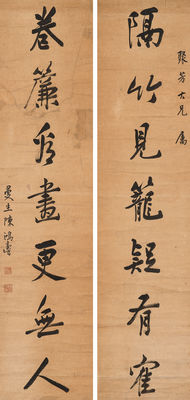 芳大兄屬
隔竹見籠疑有寉
卷簾看畫更無人
曼生陳鴻壽